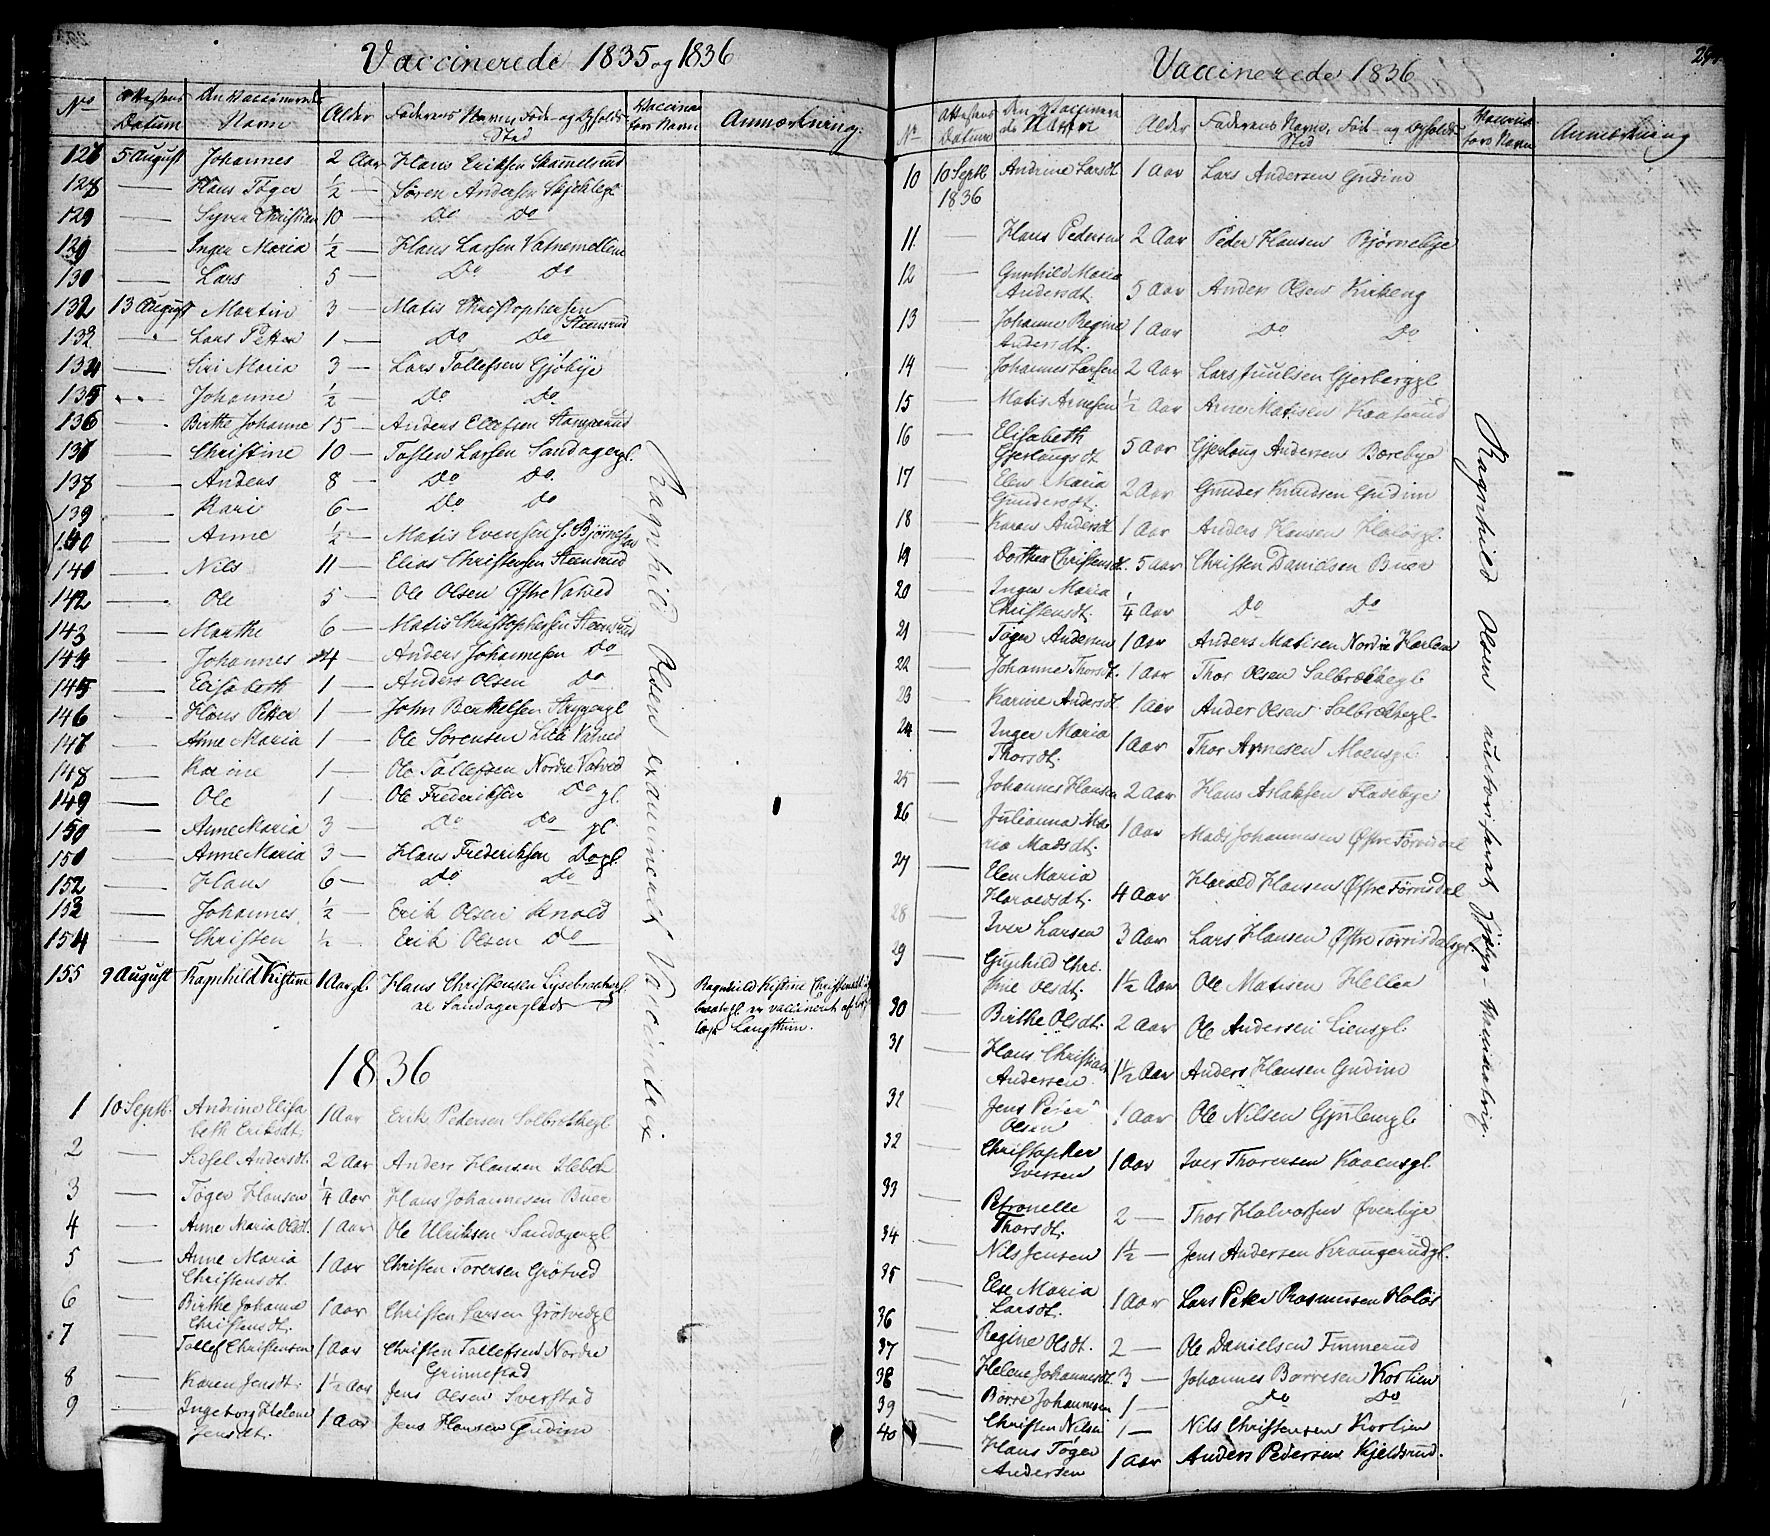 Vaccinerede 1835 og 1836
No Attestens Datum Den Vaccineredes Navn Alder Faderens Navn, Føde- og Opholds-Sted Vaccinateurs Navn Anmærkning.
5 August Johannes 2 Aar Hans Eriksen
128 — Hans Tøger ½ — Søren Andersen
129 — Syver Christian 10 — Do Do
— Inger Maria ½ — Hans Larsen Vatnemellem
130 — Lars 5 — Do Do
132 13 August Martin 3 — Matis Christophersen Steensrud
133 — Lars Petter 1 — Do Do
134 — Siri Maria 3 — Lars Tollefsen Gjøbye
135 — Johanne ½ — Do Do
136 — Birthe Johanne 15 — Anders Ellefsen
— Christine 10 — Larsen Sandagergl.
138 — Anders 8 — Do Do
139 — Kari 6 — Do Do
140 — Anne ½ — Matis Evensen
— Nils 11 — Elias Christensen Steensrud
142 — Ole 5 — Ole Olsen Østre Vatved
143 — Marthe 6 — Matis Christophersen Steensrud
144 — Johannes 4 — Anders Johannesen Do
145 — Elisabeth 1 — Anders Olsen Do
146 — Hans Petter 1 — John Berthelsen
147 — Anne Maria 1 — Ole Sørensen Lille Vatved
148 — Karine 1 — Ole Tollefsen Nordre Vatved
149 — Ole 1 — Ole Frederiksen Do gl.
150 — Anne Maria 3 — Do Do gl.
— Anne Maria 3 — Hans Frederiksen Do gl.
152 — Hans 6 — Do Do
153 — Johannes ½ — Erik Olsen Knold
154 — Christen ½ — Erik Olsen Do
155 9 August Ragnhild Kistine 1 Aar Hans Christensen
Sandager
Ragnhild Kistine
er vaccineret af
Ragnhild Olsen examineret Vaccinatrix
1836
1 10 Septb. Andrine Elisabeth Eriksdt. 1 Aar Erik Pedersen Solbrækkegl
2 — Sidsel Andersdt. 2 Aar Anders Hansen
3 — Tøger Hansen ¼ Aar Hans Johannesen Buer
4 — Anne Maria Olsdt. 1 Aar Ole Ulriksen Sandagergl
5 — Anne Maria Christensdt. 1 Aar Christen Torersen Grøtved
6 — Birthe Johanne Christensdt. 1 Aar Christen Larsen Grøtvedgl
7 — Tollef Christensen 1 Aar Christen Tollefsen Nordre Grinnestad
8 — Karen Jensdt. 1½ Aar Jens Olsen Sverstad
9 — Ingeborg Helene Jensdt. 1 Aar Jens Hansen Gudim
Vaccinerede 1836
No Attestens Datum Den Vaccineredes Navn Alder Faderens Navn, Føde- og Opholds-Sted Vaccinateurs Navn Anmærkning
10 10 Septb 1836 Andrine Larsdt 1 Aar Lars Andersen Gudim
11 — Hans Pedersen 2 Aar Peder Hansen Bjørnebye
12 — Gunhild Maria Andersdt. 5 Aar Anders Olsen Kirkeng
13 — Johanne Regine Andersdt. 1 Aar Do Do
14 — Johannes Larsen 2 Aar Lars Juulsen Gjerberggl
15 — Matis Arnesen ½ Aar Arne Matisen Kaaserud
16 — Elisabeth Gjerlougsdt 5 Aar Gjerloug Andersen Berebye
17 — Elen Maria Gundersdt. 2 Aar Gunder Knudsen Gudim
18 — Karen Andersdt 1 Aar Anders Hansen Holøsgl.
19 — Dorthea Christensdt. 5 Aar Christen Danielsen Buer
20 — Inger Maria Christensdt. ¼ Aar Do Do
21 — Tøger Andersen 1 Aar Anders Matisen Nordre Karlem
22 — Johanne Thorsdt. 1 Aar Thor Olsen Solbrækkegl.
23 — Karine Andersdt 1 Aar Anders Olsen Solbrekkegl.
24 — Inger Maria Thorsdt. 1 Aar Thor Arnesen Moensgl.
25 — Johannes Hansen 2 Aar Hans Aslaksen Fladebye
26 — Julianna Maria Madsdt. 1 Aar Mads Johannesen Østre Tørrisdal
27 — Elen Maria Haroldsdt. 4 Aar Harald Hansen Østre Tørrisdal
28 — Iver Larsen 3 Aar Lars Hansen Østre Tørrisdalsgl
29 — Gunhild Christine Olsdt. 1½ Aar Ole Matisen Hellen
30 — Birthe Olsdt. 2 Aar Ole Andersen Liensgl.
31 — Hans Christian Andersen 1½ Aar Anders Hansen Gudim
32 — Jens Peter Olsen 1 Aar Ole Nilsen
32 — Christopher Iversen 1 Aar Iver Thoresen Kaaensgl.
33 — Petronelle Thorsdt. 2 — Thor Halvorsen Øverbye
34 — Nils Jensen 1½ — Jens Andersen Kraugerudgl.
35 — Else Maria Larsdt. 1 Aar Lars Peter Rasmussen Holøs
36 — Regine Olsdt. 2 — Ole Danielsen Timmerud
37 — Helene Johannesdt. 3 — Johannes Børresen Kortien
38 — Børre Johannesen 1 — Do Do
39 — Christen Nilsen 1 — Nils Christensen Kortien
40 — Hans Tøger Andersen 1 Aar Anders Pedersen Kjeldsrud.
Ragnhild Olsen autoriseret Hjelpe-Vaccinatrix.